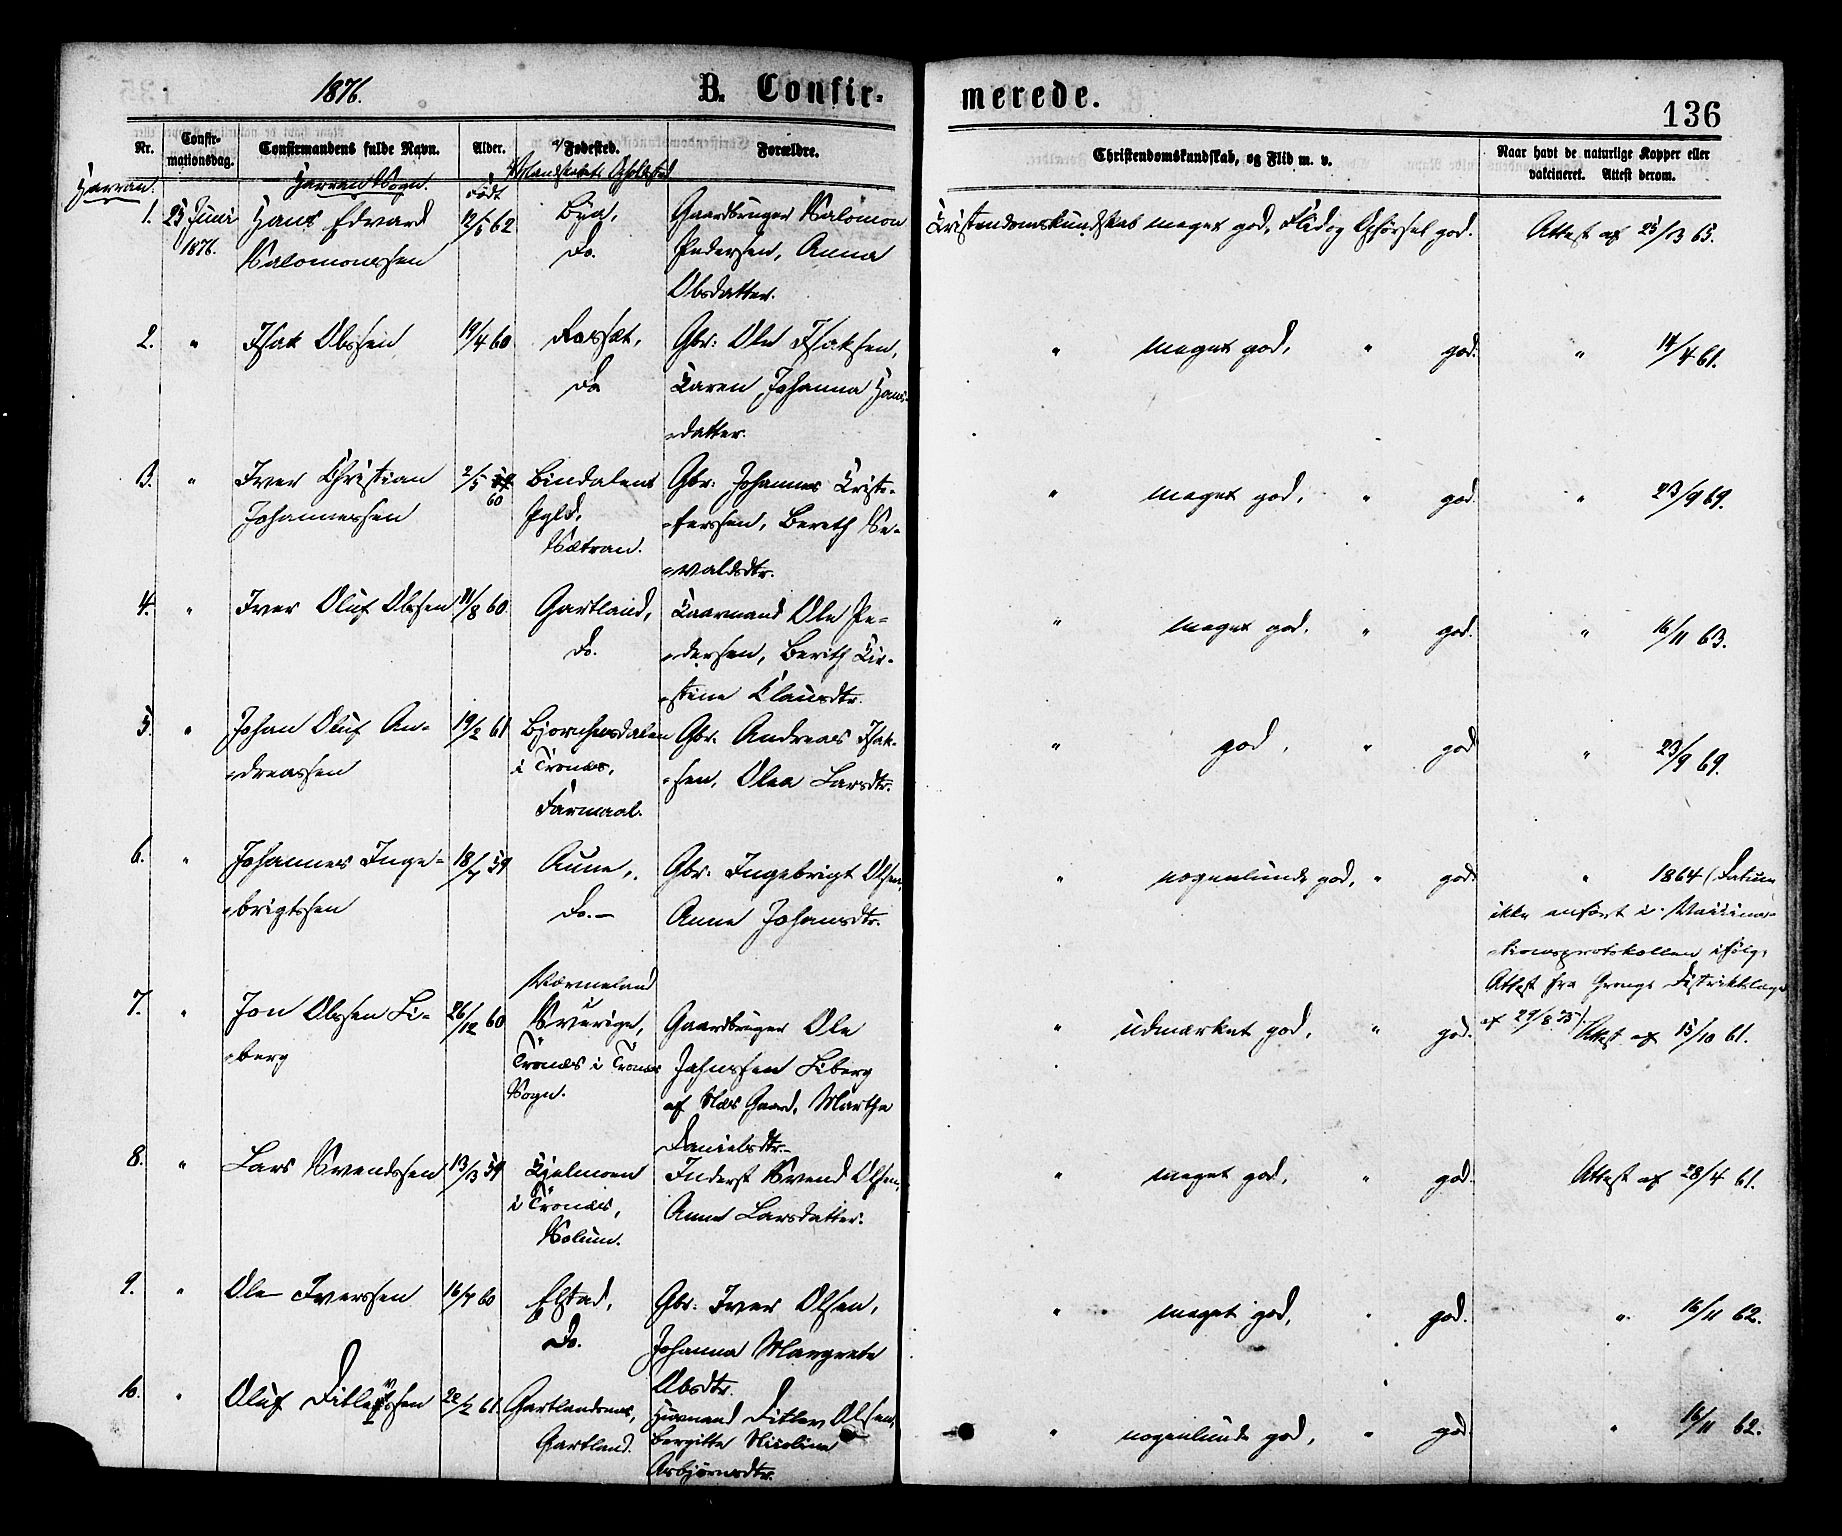 1876.
B. Confirmerede.
136
Nr.
Confirmationsdag.
Confirmandens fulde Navn.
Alder.
Fødested.
Forældre.
Christendomskundskab, og Flid m. v.
Naar havt de naturlige Kopper eller
vakcineret. Attest derom.
Harran.
Harran Sogn.
Født
1. 25 Juni 1876. Hans Edvard Salomonssen 12/5 62 Bya, Do. Gaardbruger Salomon
Pedersen, Anna
Olsdatter.
Kristendomskundskab meget god, Flid og Opførsel god. Attest af 25/3 65.
2. " Isak Olssen 19/4 60 Rosset, Do. Gbr: Ole Isaksen,
Karen Johanna Hans-
datter.
" meget god, " god. " 14/4 61.
3. " Iver Christian Johannessen 2/5 59 60 Bindalens Pgld, Sætran. Gbr: Johannes Kristo-
fersen, Bereth Se-
valdsdtr.
" meget god, " god. " 23/9 69.
4. " Iver Oluf Olssen 11/8 60 Gartland, Do. Kaarmand Ole Pe-
dersen, Berith Kir-
stine Clausdtr.
" meget god, " god. " 16/11 63.
5. " Johan Oluf An-
dreassen 19/2 61 i Tronæs, Gbr. Andreas Isak-
sen, Olea Larsdtr.
" god, " god " 23/9 69.
6. " Johannes Inge-
brigtsen 18/7 59 Aune, Do. Gbr. Ingebrigt Olsen,
Anne Johansdtr.
" nogenlunde god, " god. " 1864 (Datum
ikke anført i Vaccina-
tionsprotokollen ifølge
Attest fra Grongs Distriktslæge
af 29/8 75).
7. " Jon Olssen Li-
berg 26/12 60 Værmeland
i
Sverige,
Tronæs i Tronæs
Sogn.
Gaardbruger Ole
Liberg
af Næs Gaard, Marthe
Danielsdtr.
" udmærket god, " god. Attest af 15/10 61.
8. " Lars Svendssen 13/3 59 Kjelmoen
i Tronæs,
Solum.
Inderst Svend Olsen,
Anne Larsdatter.
" meget god, " god. Attest af 28/4 61.
9. " Ole Iverssen 16/7 60 Elstad, Do. Gbr: Iver Olsen,
Johanna Margrete
Olsdtr.
" meget god, " god. " 16/11 62.
10. " Oluf Ditlevssen 22/2 61 Gartlandsnes,
Gartland.
Huusmand Ditlev Olsen,
Bergitte Nicoline
Asbjørnsdtr.
" nogenlunde god, " god. " 16/11 62.